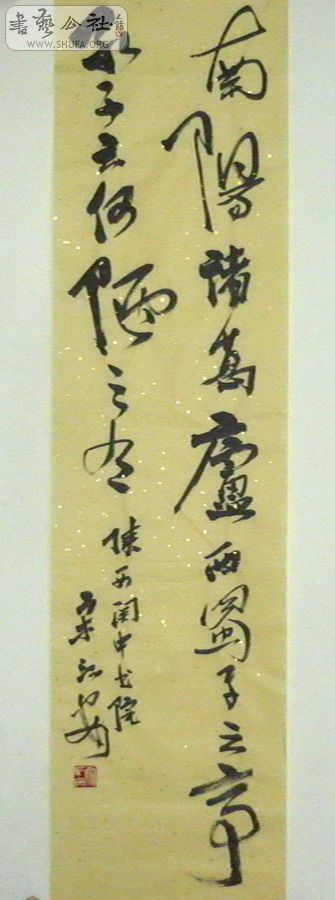 書藝公社
WWW.SHUFA.ORG
南陽諸葛廬西蜀子云亭
孔子云何陋之有
陕西关中书院